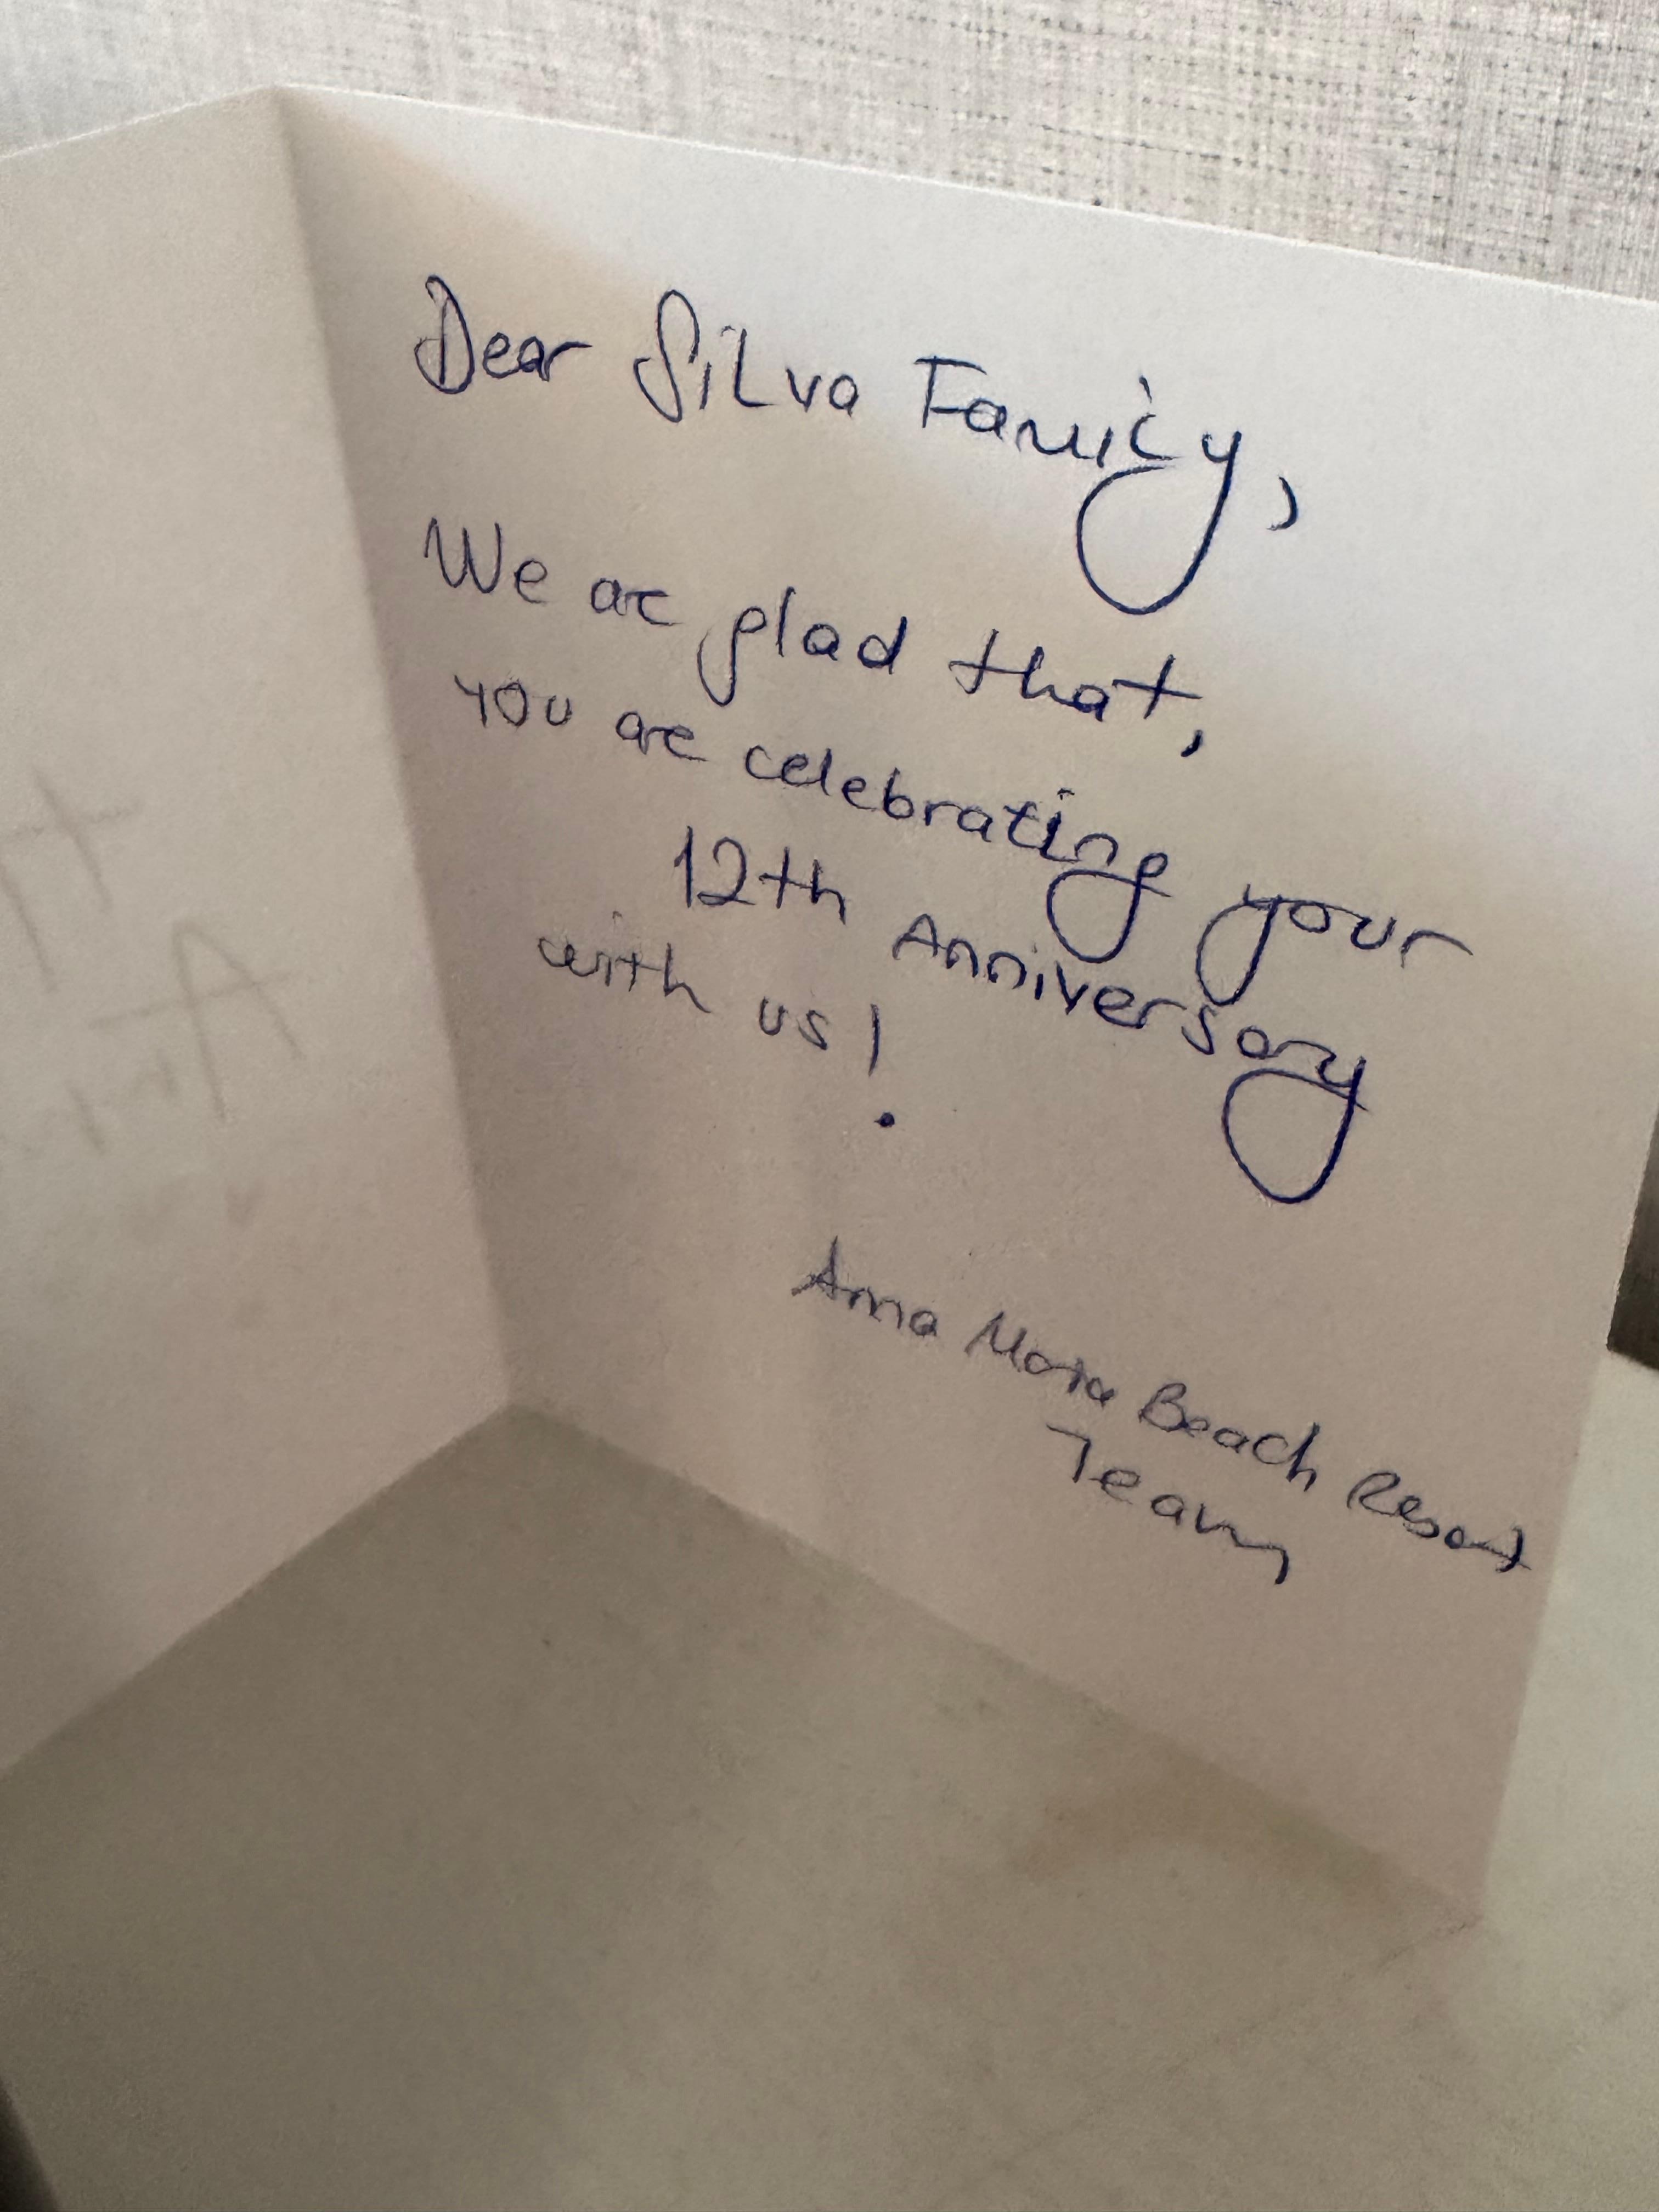 Dear Silva Family,
We are glad that,
you are celebrating your
12th Anniversary
with us!
Beach Resort
Team